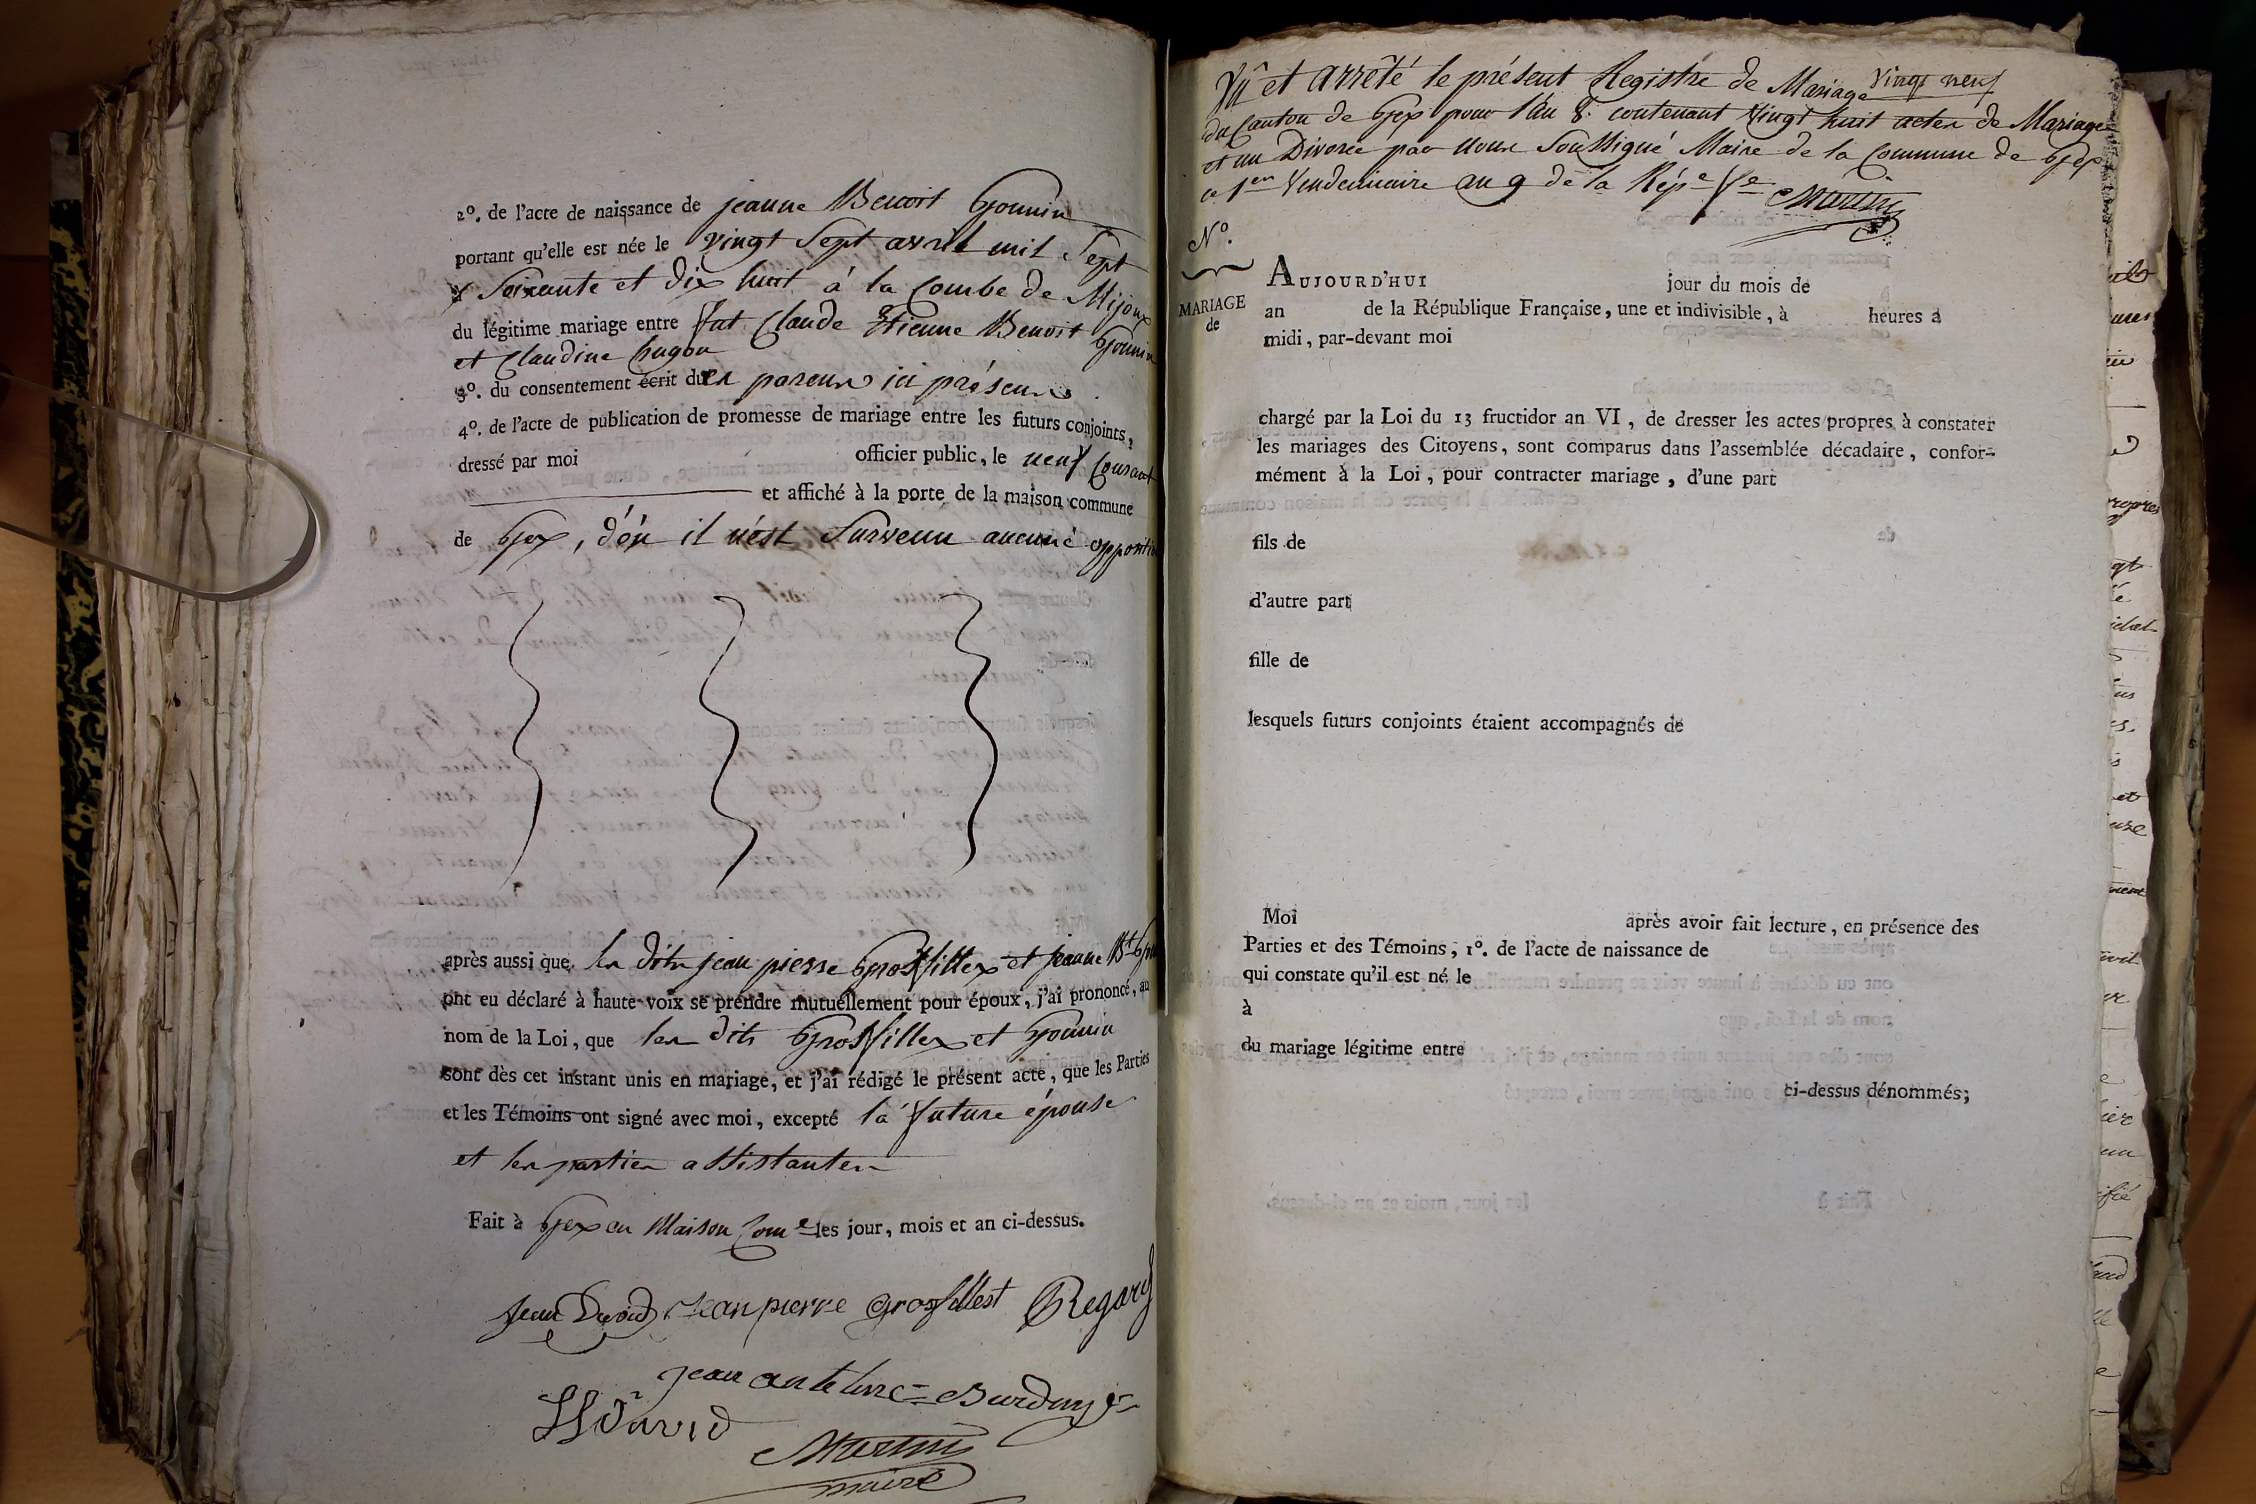 2º. de l'acte de naissance de jeanne Benoit Gounin
portant qu'elle est née le vingt Sept avril mil Sept
Soixante et dix huit à la Combe de Mijoux
du légitime mariage entre fut Claude Etienne Benoit Gounin
et Claudine hugon
3º. du consentement écrit du es parens ici présens
4º. de l'acte de publication de promesse de mariage entre les futurs conjoints,
dressé par moi officier public, le neuf Courant
et affiché à la porte de la maison commune
de Gex, d'óu il n'est Survenu aucune opposition
après aussi que les dits jean pierre Grosfillex et jeanne Bt
ont eu déclaré à haute voix se prendre mutuellement pour époux, j'ai prononcé, au
nom de la Loi, que les dits Grosfillex et Gounin
sont dès cet instant unis en mariage, et j'ai rédigé le présent acte, que les Parties
et les Témoins ont signé avec moi, excepté la future épouse
et les parties assistantes
Fait à Gex en Maison Come les jour, mois et an ci-dessus.
Jean David Jean pierre grosfillest Regard
jean antelme Burdung
David
Martin
maire
Vû et arrêté le présent Registre de Mariage vingt neuf
du Canton de Gex pour l'an 8. contenant vingt huit actes de Mariage
et un Divorce par nous Soussigné Maire de la Commune de Gex
ce 1er Vendemiaire an 9 de la Répe fe Martin
Nº.
MARIAGE
de
AUJOURD'HUI jour du mois de
an de la République Française, une et indivisible, à heures a
midi, par-devant moi
chargé par la Loi du 13 fructidor an VI, de dresser les actes propres à constater
les mariages des Citoyens, sont comparus dans l'assemblée décadaire, confor-
mément à la Loi, pour contracter mariage, d'une part
fils de
d'autre part
fille de
lesquels futurs conjoints étaient accompagnés de
Moi après avoir fait lecture, en présence des
Parties et des Témoins, 1º. de l'acte de naissance de
qui constate qu'il est né le
à
du mariage légitime entre
ci-dessus dénommés;